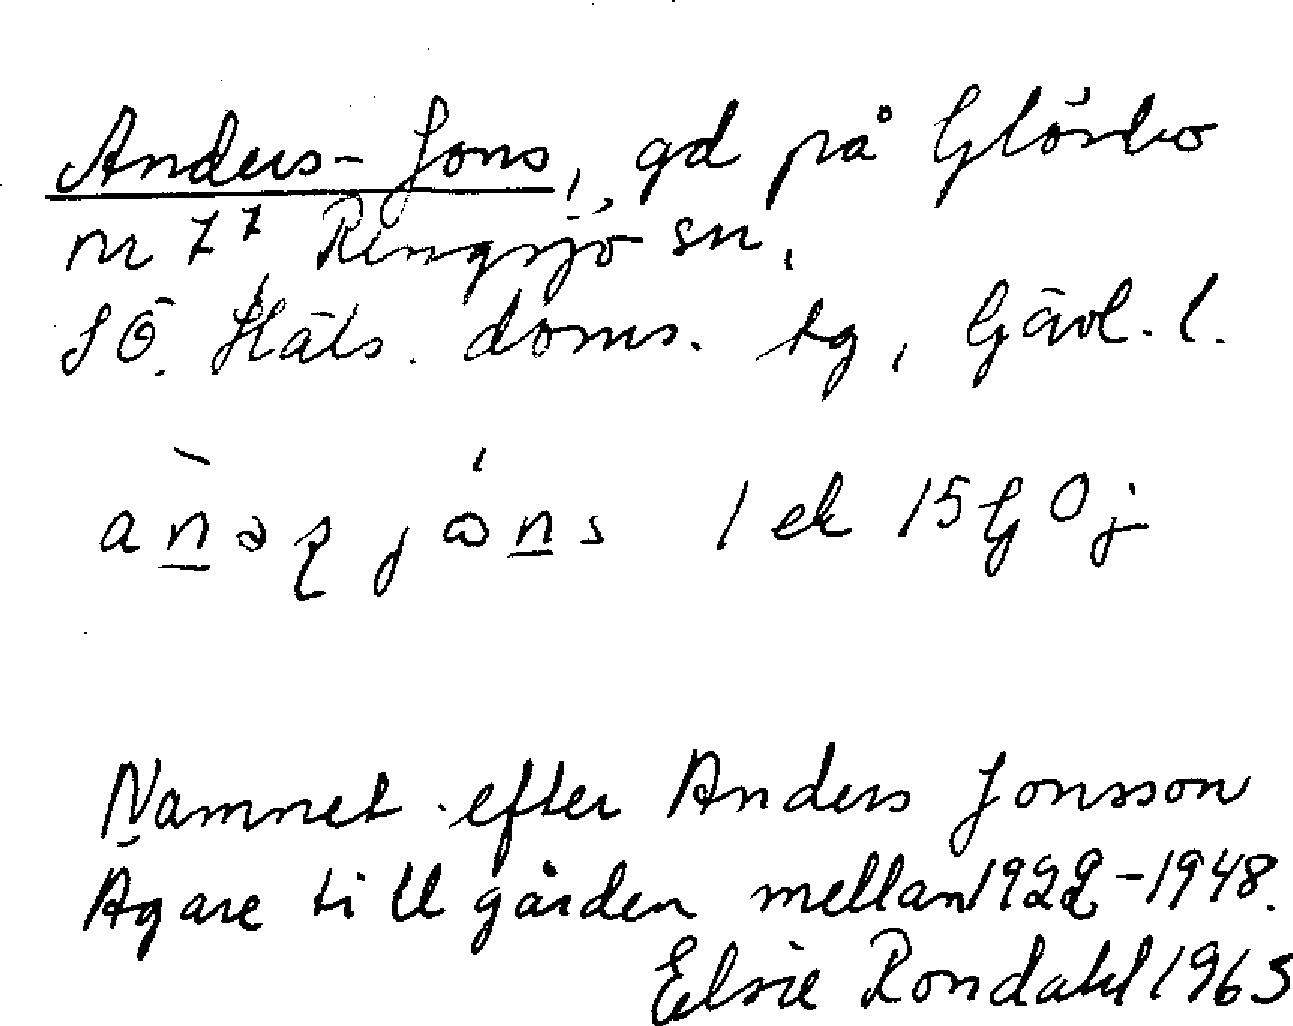 Anders-Jons, gd på Glösbo
nr 7⁷, Rengsjö sn,
SÖ. Häls. doms. tg, Gävl. l.
1 ek 15G0j
Namnet efter Anders Jonsson
Agare till gården mellan 1922-1948.
Elsie Rondahl 1963